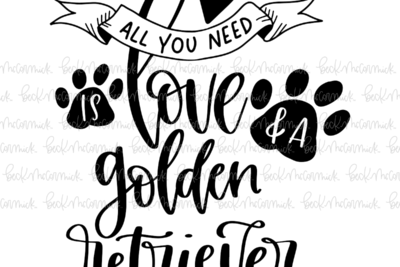 ALL YOU NEED
IS love & A
golden
retriever